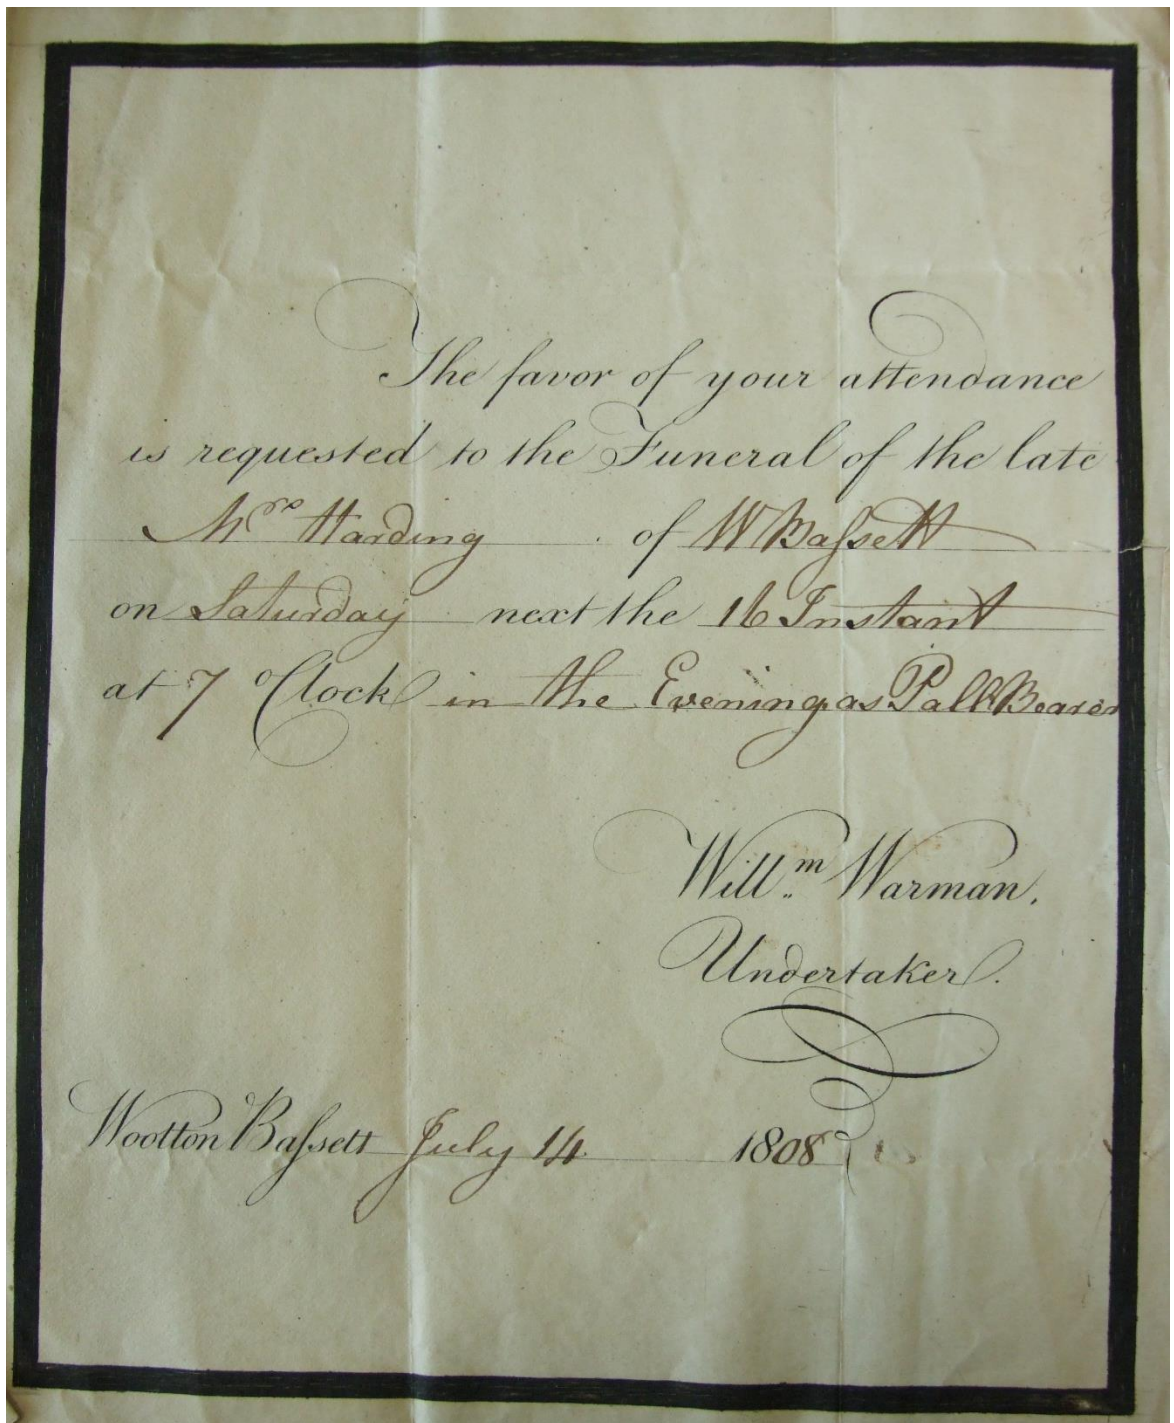 The favor of your attendance
is requested to the Funeral of the late
Mrs Harding of W Baſsett
on Saturday next the 16 Instant
at 7 oClock in the Evening as Pall Bearer
Willm Warman.
Undertaker.
Wootton Baſsett July 14 1808